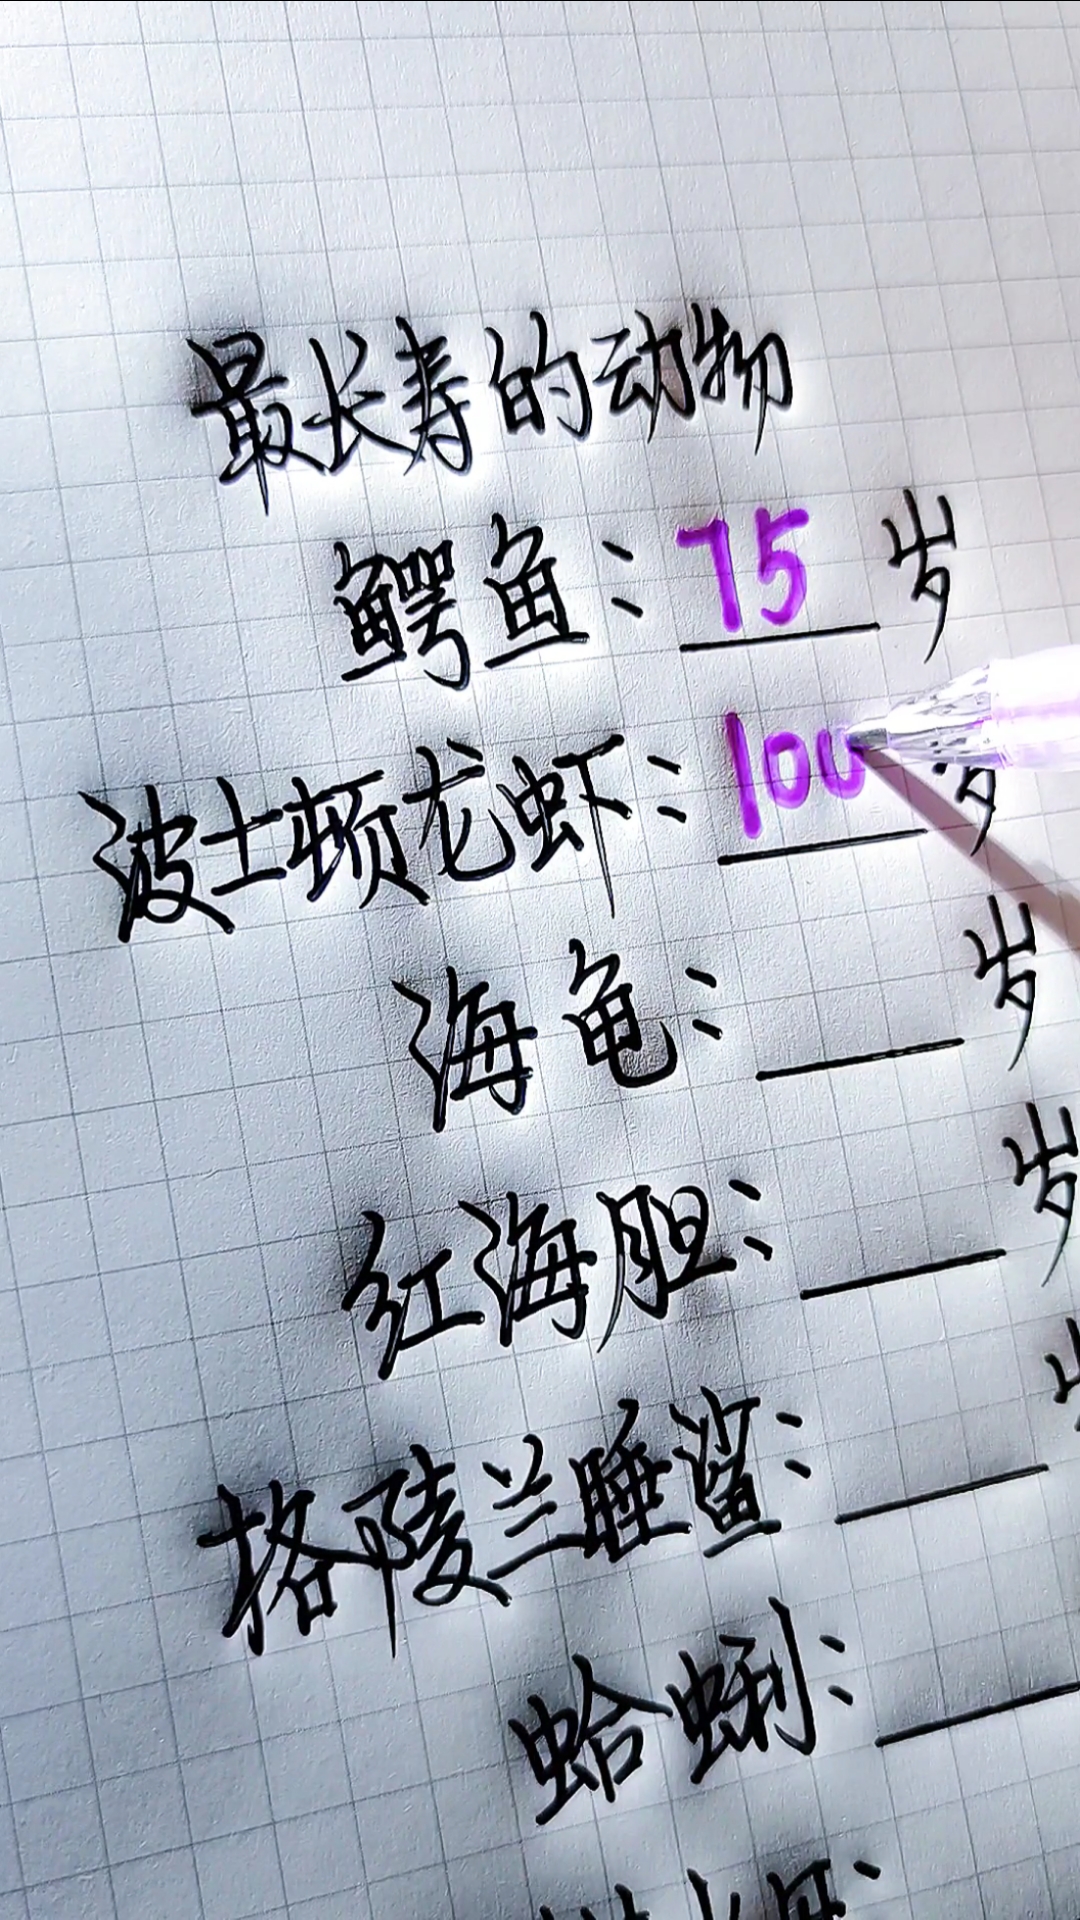 最长寿的动物
鳄鱼：75岁
波士顿龙虾：100岁
海龟：岁
红海胆：岁
格陵兰睡鲨：
蛤蜊：